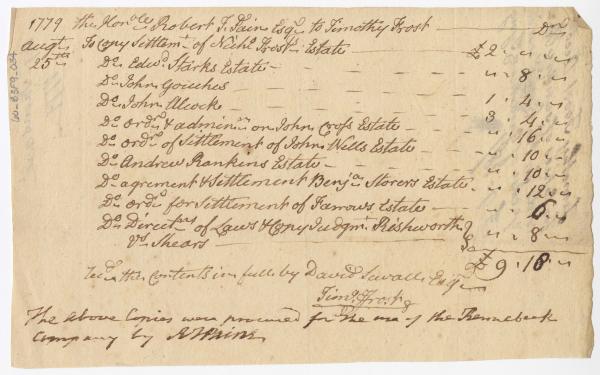 1779 the Honble Robert T. Pain Esqr to Timothy Frost — Dr
augt 25th To Copy Settlemt of Nichs Frosts Estate — £2 " — " —
Do Edwd Starks Estate — " 8 "
Do John Gouches —
Do John Alcocks — 1 " 4 "
Do ordrs & adminn on John Cross Estate — 3 " 4 "
Do ordr of Settlement of John Wells Estate — " 16 "
Do Andrew Rankins Estate — " 10 "
Do agrement & Settlement Benja Storers Estate — " 10 "
Do ordr for Settlement of Farrows Estate — " 12 "
Do of Laws & Copy Judgmt Rishworth " 6 "
vs Shears — " 8 "
£9 " 18 "
the Contents in full by David Sewall Esqr
Timo Frost
The above Copies were procured for the use of the Kennebeck
Company by RTPaine
60-6359-004